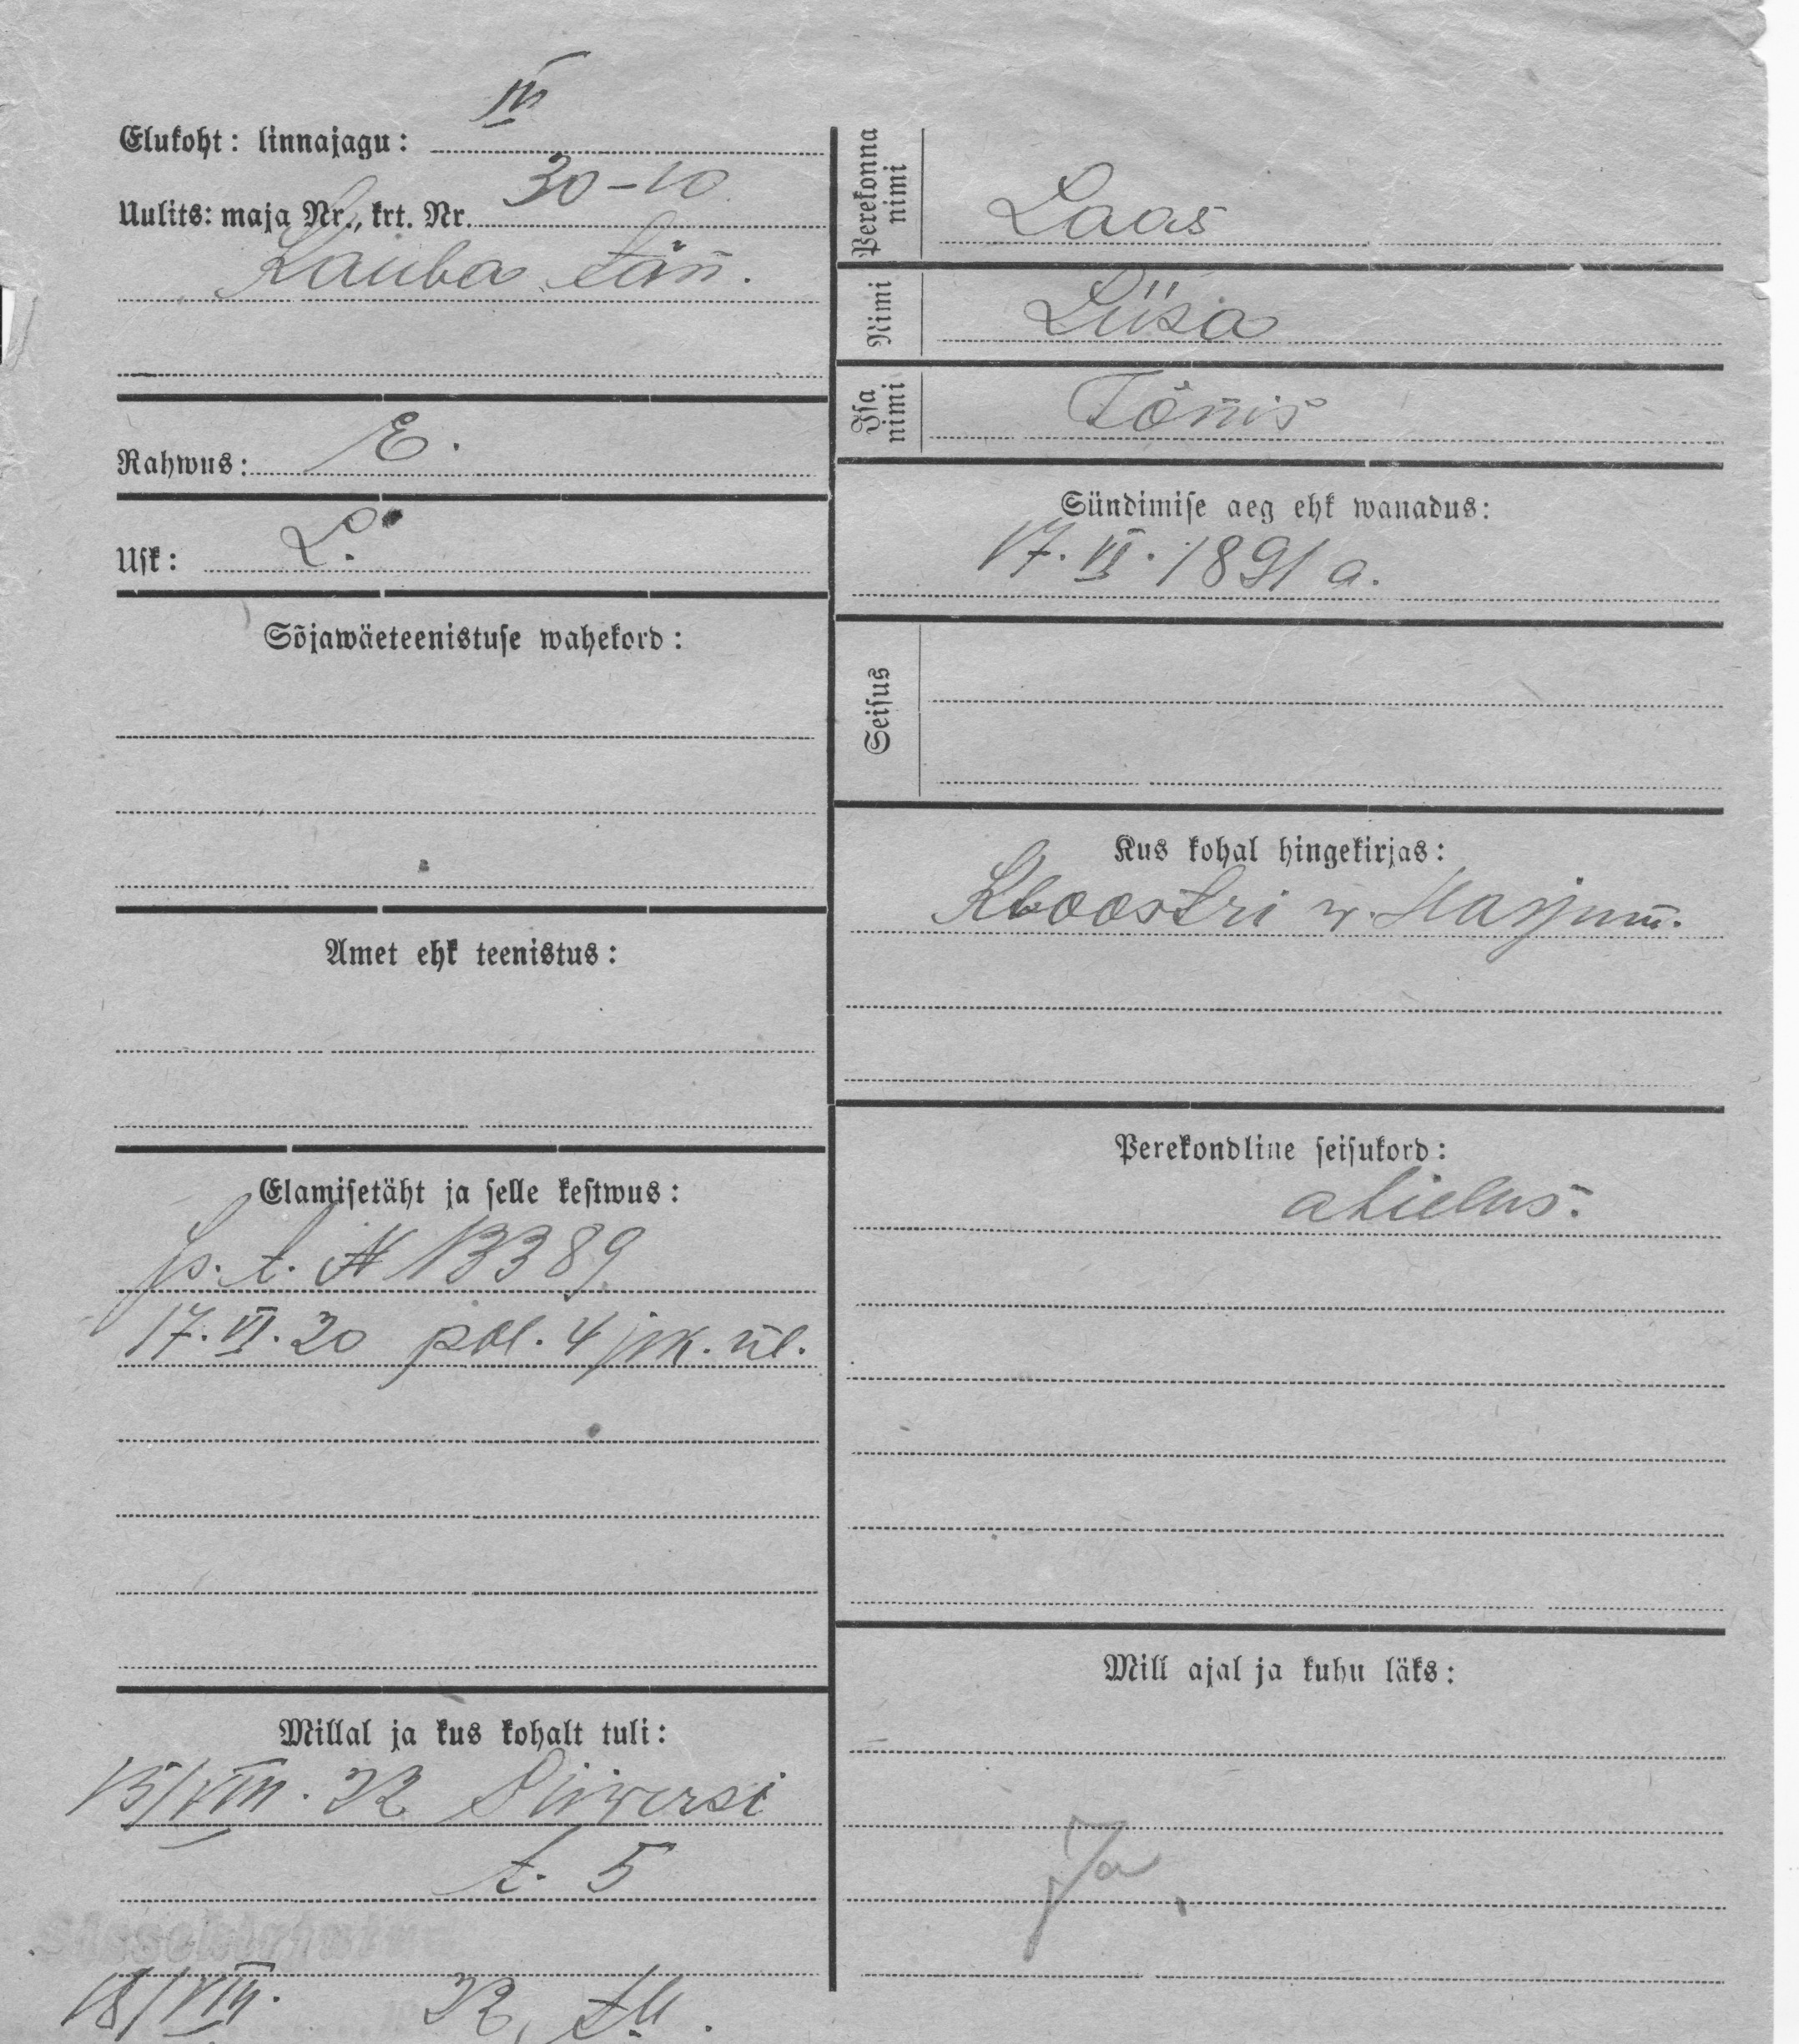 Elukoht: linnajagu: IV
Uulits: maja Nr., krt. Nr. 30-10.
Kauba tän.
Rahwus: E.
Usk: L.
Sõjawäeteenistuse wahekord:
Amet ehk teenistus:
Elamisetäht ja selle kestwus:
p. t. № 13389
17. VI. 20 pol. 4 jsk. ül.
Millal ja kus kohalt tuli:
15/VIII. 22 Siiwersi
t. 5
Sissekirjutud
18/VIII. 22.
Perekonna nimi
Laas
Nimi
Liisa
Isa nimi
Tõnis
Sündimise aeg ehk wanadus:
17. VI. 1891 a.
Seisus
Kus kohal hingekirjas:
Kloostri w. Harjum.
Perekondline seisukord:
abielus.
Mill ajal ja kuhu läks: